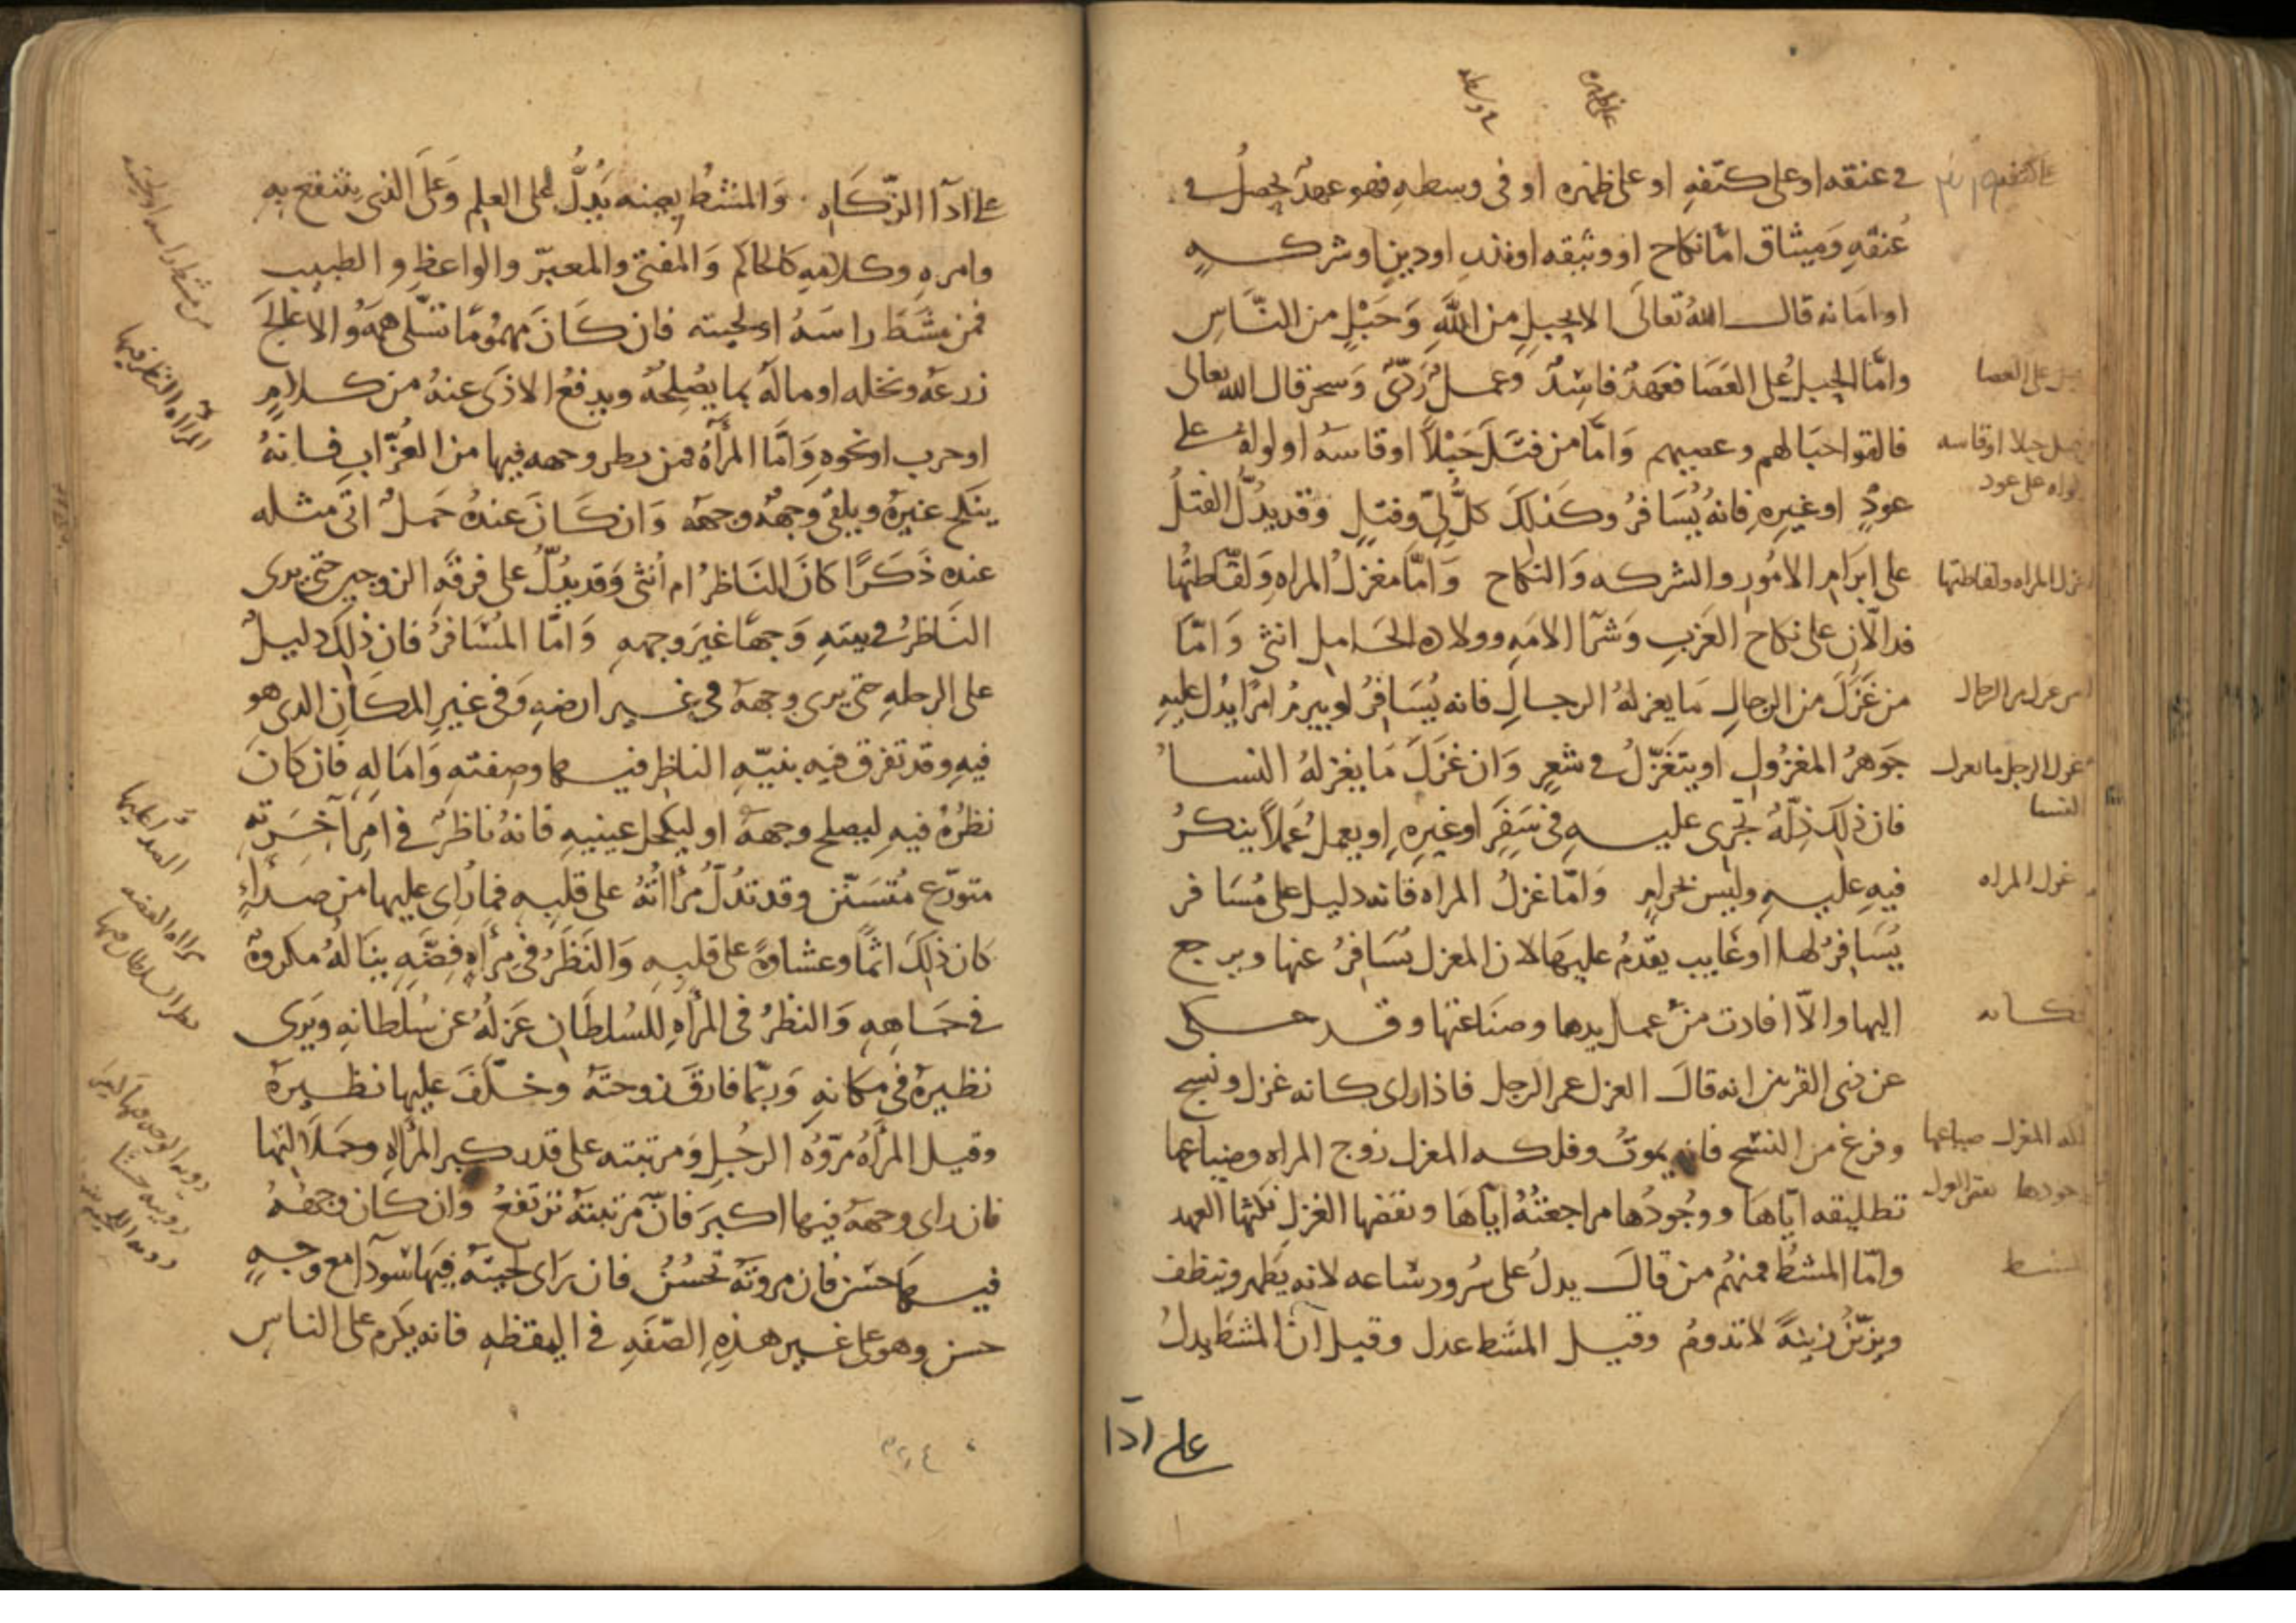 في عنقه او على كتفه او على ظهره او في وسطه فهو عهد يحصل في
عنقه وميثاق اما نكاح او وثيقه او نذر او دين او شركه
او امانه قال الله تعالى الا بحبل من الله وحبل من الناس
واما الحبل على العصا فعهد فاسد وعمل ردي وسحر قال الله تعالى
فالقوا حبالهم وعصيهم واما من فتل حبلا او قاسه او لواه على
عود او غيره فانه يسافر وكذلك كل لي وفتل وقد يدل الفتل
على ابرام الامور والشركه والنكاح واما مغزل المراه ولقاطتها
فدالان على نكاح العزب وشرا الامه وولاده الحامل انثى واما
من غزل من الرجال ما يغزله الرجال فانه يسافر او يبرم امرا يدل عليه
جوهر المغزول او يتغزل في شعر وان غزل ما يغزله النسا
فان ذلك ذلة تجرى عليه في سفر او غيره او يعمل عملا ينكر
فيه عليه وليس بحرام واما غزل المراه فانه دليل على مسافر
يسافر لها او غايب يقدم عليها لان المغزل يسافر عنها ويرجع
اليها والا افادت من عمل يدها وصناعتها وقد حكى
عن ذى القرنين انه قال الغزل عمر الرجل فاذا راى كانه غزل ونسج
وفرغ من النسج فانه يموت وفلكه المغزل زوج المراه وضياعها
تطليقه اياها ووجودها مراجعته اياها ونقضها الغزل نكثها العهد
واما المشط فمنهم من قال يدل على سرور ساعه لانه يطهر وينظف
ويزين زينة لا تدوم وقيل المشط عدل وقيل ان المشط يدل
على ادا
على العصا
حبلا او قاسه
لواه على عود
غزل المراه ولقاطتها
من غزل من الرجال
غزل الرجل ما يغزل
النسا
غزل المراه
المغزل ضياعها
وجودها نقض الغزل
المشط
على ادا الزكاه والمشط بعينه يدل على العلم وعلى الذى ينتفع به
وامره وكلامه كالحاكم والمفتى والمعبر والواعظ والطبيب
فمن مشط راسه او لحيته فان كان مهموما تسلى همه والا عالج
زرعه ونخله او ماله بما يصلحه ويدفع الاذى عنه من كلام
او حرب او نحوه واما المرآه فمن نظر وجهه فيها من العزاب فانه
ينكح غيره ويلقى وجهه وجهه وان كان عنده حمل اتى مثله
عنده ذكرا كان الناظر ام انثى وقد يدل على فرقه الزوجين حتى يرى
الناظر في بيته وجها غير وجهه واما المسافر فان ذلك دليل
على الرحله حتى يرى وجهه في غير ارضه وفي غير المكان الذى هو
فيه وقد تفرق فيه بنيه الناظر فيها وصفته واماله فان كان
نظره فيه ليصلح وجهه او ليكحل عينيه فانه ناظر في امر آخرته
متورع متسنن وقد تدل مرآته على قلبه فما راى عليها من صداء
كان ذلك اثما وغشاوة على قلبه والنظر في مرآه فضه يناله مكروه
في جاهه والنظر في المرآه للسلطان عزله عن سلطانه ويرى
نظيره في مكانه وربما فارق زوجته وخلف عليها نظيره
وقيل المرآه مروة الرجل ومرتبته على قدر كبر المرآه وجلالتها
فان راى وجهه فيها اكبر فان مرتبته ترتفع وان كان وجهه
فيها حسن فان مروته تحسن فان راى لحيته فيها سودا مع وجه
حسن وهو على غير هذه الصفه في اليقظه فانه يكرم على الناس
من مشط راسه او لحيته
المرآه النظر فيها
مرآه الفضه
نظر السلطان فيها